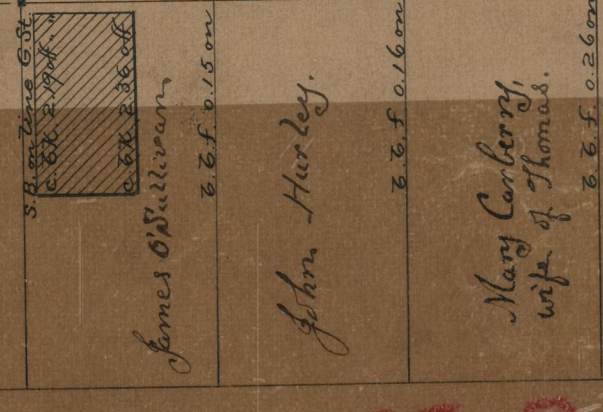 S.B. on line G. St.
c. bk 2.19 off " "
c. bk 2.36 off
James O'Sullivan,
t.t.f. 0.15 on
John Hurley.
t.t.f. 0.16 on
Mary Canberry,
wife of Thomas.
t.t.f. 0.26 on